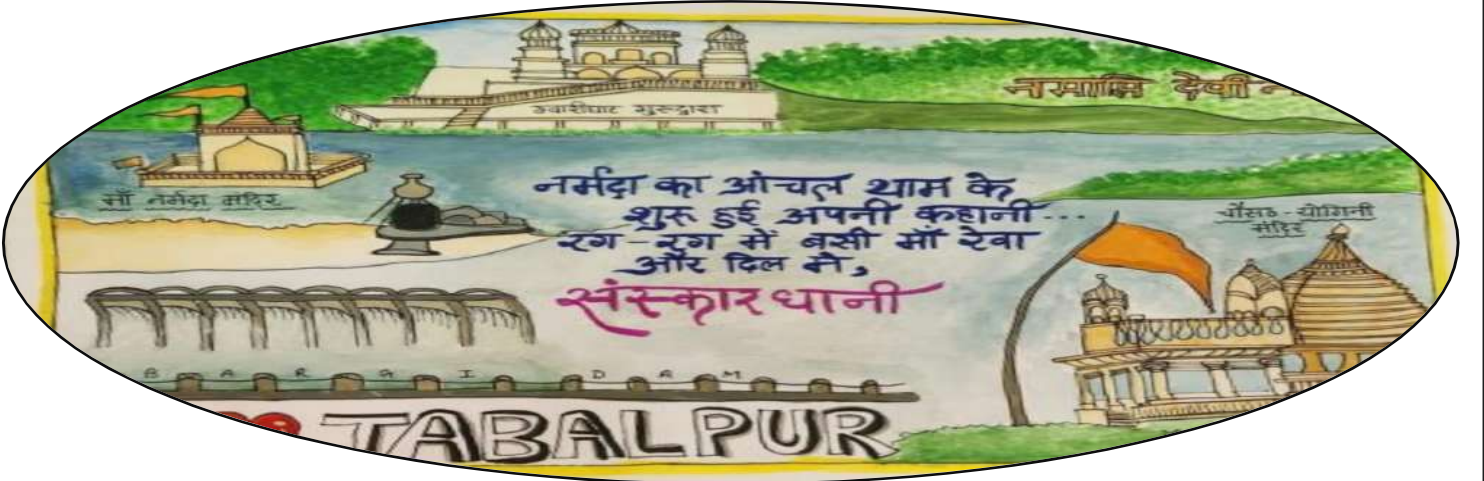 ग्वारीघाट गुरुद्वारा
नमामि देवी
माँ नर्मदा मंदिर
नर्मदा का आंचल थाम के
शुरू हुई अपनी कहानी...
रग-रग में बसी माँ रेवा
और दिल में,
संस्कारधानी
चौंसठ-योगिनी
मंदिर
BARGI DAM
JABALPUR